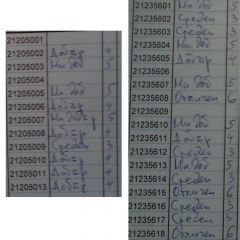 21205001
21205002 Добър 4
21205003 Мн добър 5
21205004
21205005 Мн доб 5
21205006 Добър 4
21205007 Мн добър 5
21205008 Добър 4
21205009 Среден 3
21205010 Добър 4
21205011 Добър 4
21205013 Добър 4
21235601 Мн доб 5
21235602 Среден 3
21235603 Среден 3
21235604 Мн доб 5
21235605 Добър 4
21235606
21235607 Мн доб 5
21235608 Отличен 6
21235609
21235610 Мн доб 5
21235611 Добър 4
21235612 Среден 3
21235613 Мн доб 5
21235614 Среден 3
21235615 Отличен 6
21235616 Среден 3
21235617 Среден 3
21235618 Отличен 6